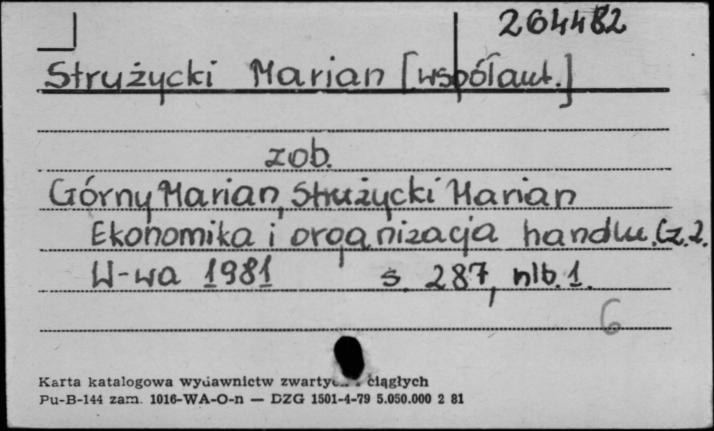 264482
Strużycki Marian [współaut.]
zob.
Górny Marian, Strużycki Marian
Ekonomika i organizacja handlu. Cz. 2.
W-wa 1981 s. 287, nlb. 1.
6
Karta katalogowa wydawnictw ciągłych
Pu-B-144 zam. 1016-WA-O-n — DZG 1501-4-79 5.050.000 2 81